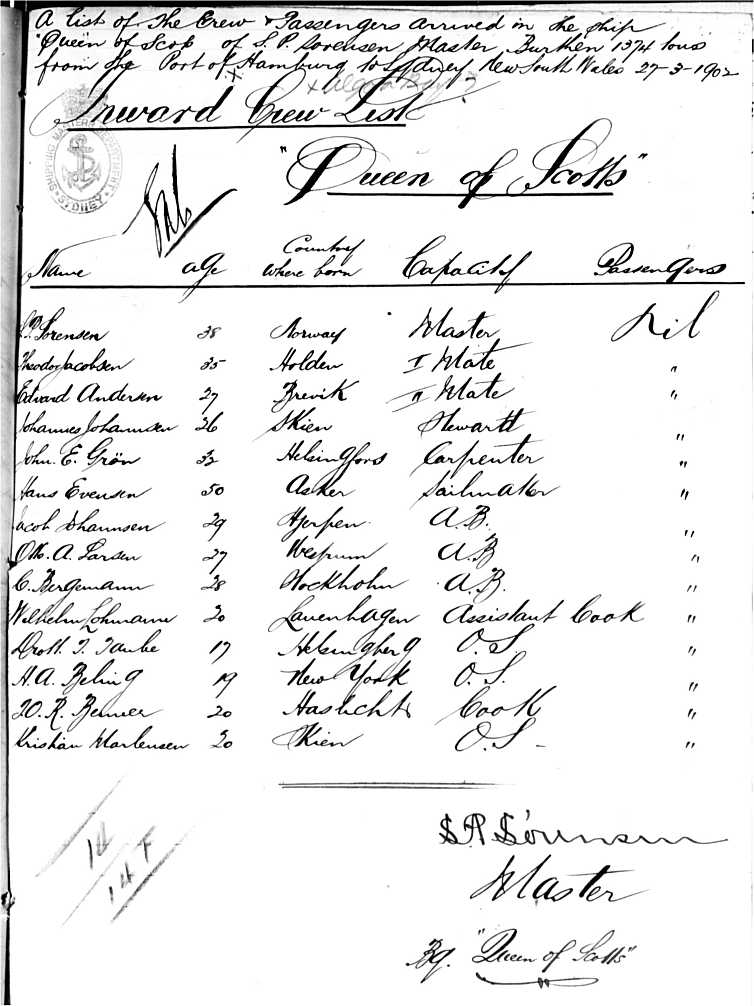 A List of the Crew & Passengers arrived in the ship
"Queen of Scots of S. P. Sorensen, Master, Burthen 1374 tons
from the Port of Hamburg to Sydney New South Wales 27-3-1902
Inward Crew List
SHIPPING MASTER'S DEPARTMENT SYDNEY
"Queen of Scotts"
Name age Country where born Capacity Passengers
S.P. Sorensen 38 Norway Master Nil
Theodor Jacobsen 35 Holden I Mate "
Edvard Andersen 27 Brevik II Mate "
Johannes Johannsen 26 Skien Stewartt "
John. E. Grön 32 Helsingfors Carpenter "
Hans Evensen 50 Asker Sailmaker "
Jacob Johannsen 29 Hjerpen A.B. "
A. Larsen 27 A.B "
C. Bergemann 28 Stockholm A.B. "
Wilhelm Lohmann 20 Lauenhagen Assistant Cook "
Drott. T. Taube 17 Helsingberg O.S. "
H. A. Beling 19 New York O.S. "
R. 20 Cook "
Kristian Martensen 20 Skien O.S - "
14
14 +
S P Sörensen
Master
Bq. "Queen of Scotts"